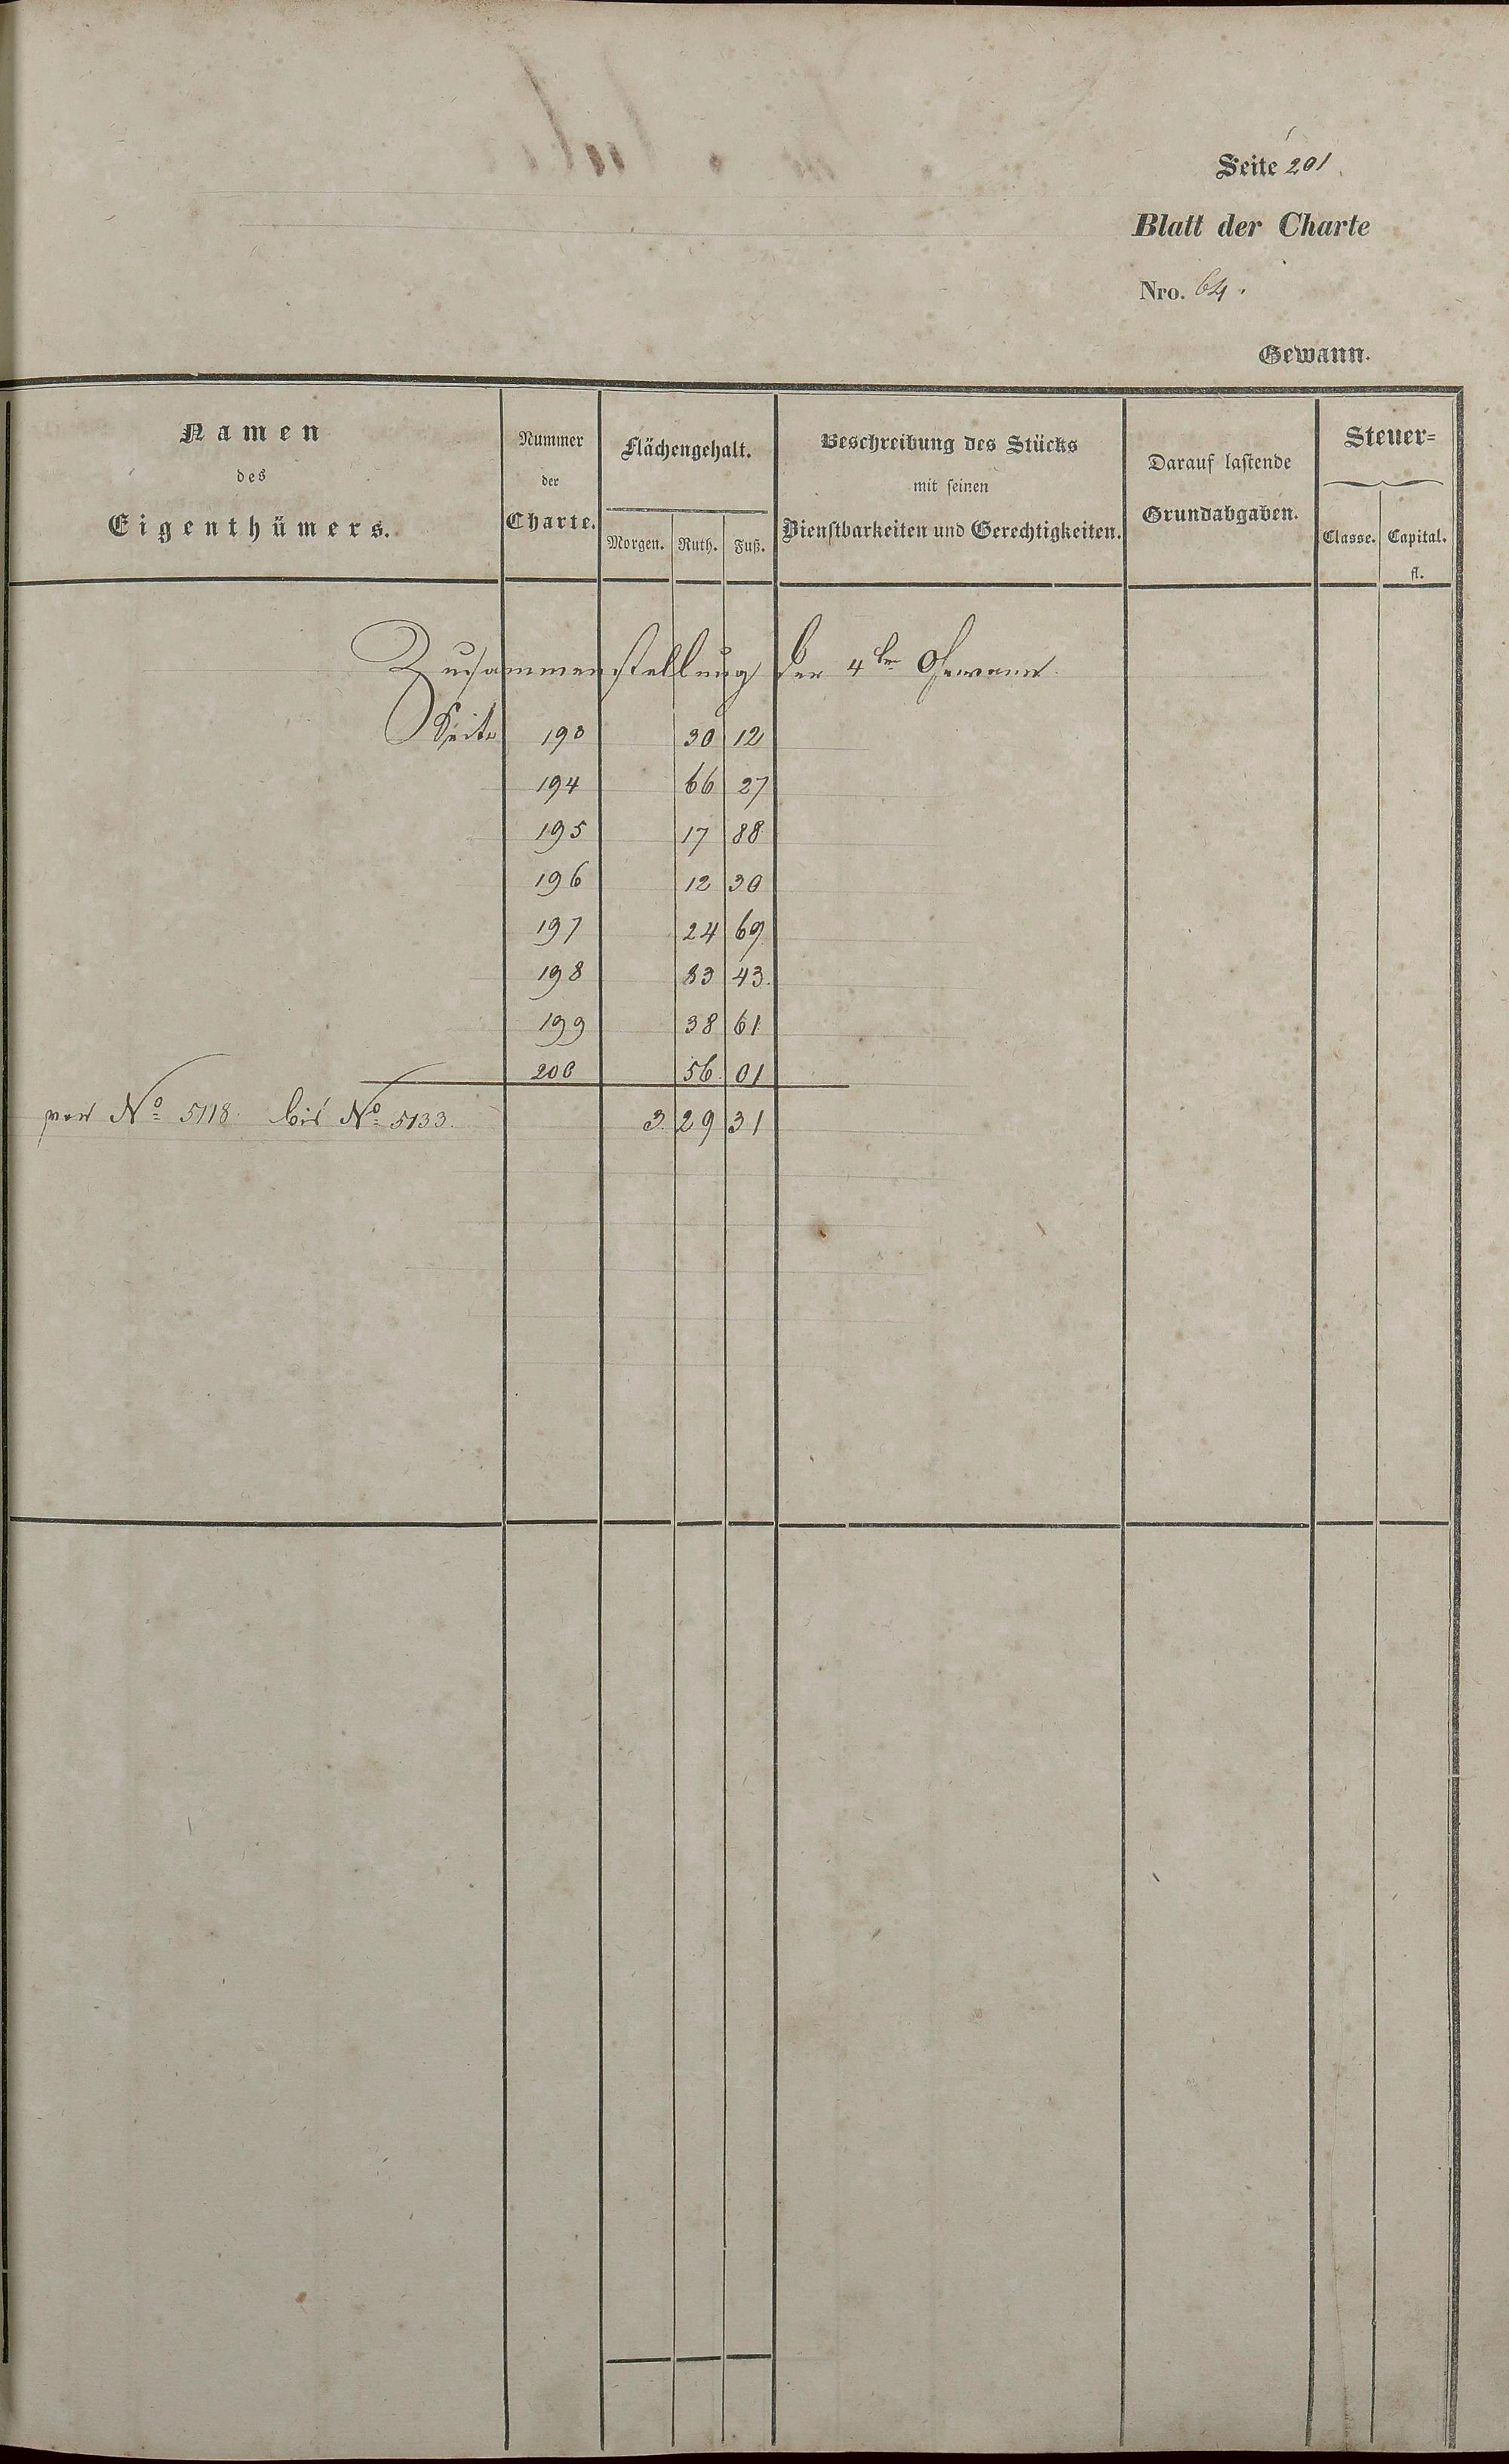 Seite 201.
Blatt der Charte
Nro. 64.
Gewann.
Namen des Eigenthümers.
Nummer der Charte.
Flächengehalt.
Morgen. Ruth. Fuß.
Beschreibung des Stücks mit seinen Dienstbarkeiten und Gerechtigkeiten.
Darauf lastende Grundabgaben.
Steuer=
Classe. Capital.
fl.
Zusammenstellung der 4ten Gewann.
Seite 193 30 12
194 66 27
195 17 88
196 12 30
197 24 69
198 83 43.
199 38 61
200 56. 01
von No 5118. bis No 5133. 3. 29 31